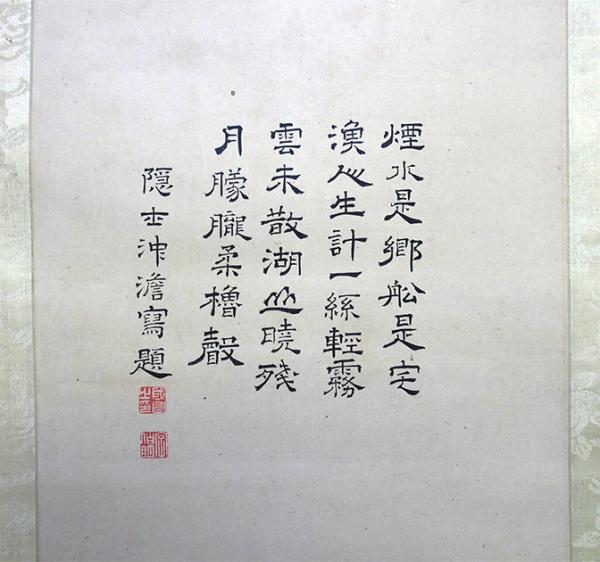 煙水是鄉舩是宅
漁心生計一絲輕霧
雲未散湖曉殘
月朦朧柔櫓聲
隱士沖澹寫題